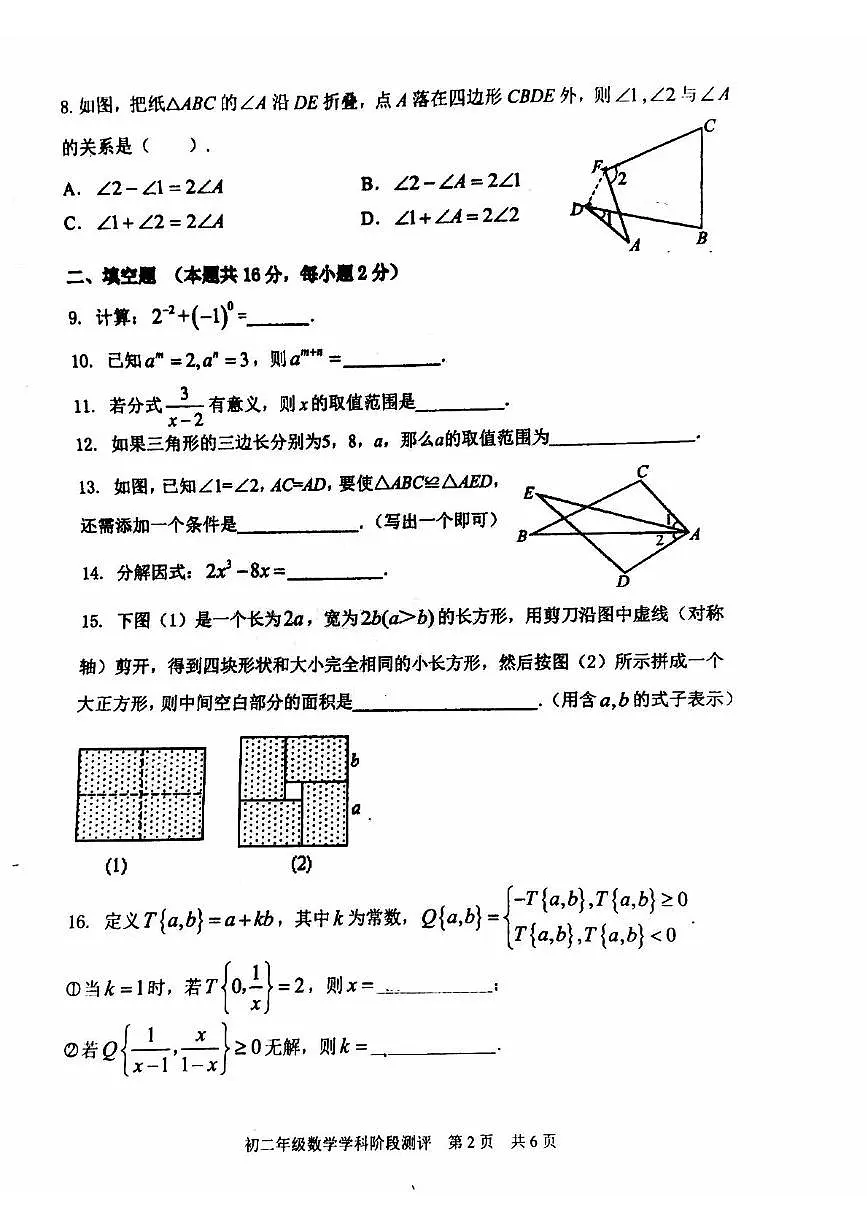 8. 如图，把纸△ABC 的∠A 沿 DE 折叠，点 A 落在四边形 CBDE 外，则∠1,∠2 与∠A
的关系是（　　）.
A. ∠2-∠1=2∠A　　B. ∠2-∠A=2∠1
C. ∠1+∠2=2∠A　　D. ∠1+∠A=2∠2
C
F
2
D
1
A
B
二、填空题 （本题共 16 分，每小题 2 分）
9. 计算：2⁻²+(-1)⁰=______.
10. 已知 aᵐ=2,aⁿ=3，则 aᵐ⁺ⁿ=________.
11. 若分式 3/(x-2) 有意义，则 x 的取值范围是________.
12. 如果三角形的三边长分别为5，8，a，那么a的取值范围为____________.
13. 如图，已知∠1=∠2，AC=AD，要使△ABC≌△AED，
还需添加一个条件是__________.（写出一个即可）
C
E
1
B
2
A
D
14. 分解因式：2x³-8x=________.
15. 下图（1）是一个长为2a，宽为2b(a>b)的长方形，用剪刀沿图中虚线（对称
轴）剪开，得到四块形状和大小完全相同的小长方形，然后按图（2）所示拼成一个
大正方形，则中间空白部分的面积是______________.（用含 a,b 的式子表示）
b
a
(1)　　(2)
16. 定义T{a,b}=a+kb，其中 k 为常数，Q{a,b}={-T{a,b},T{a,b}≥0
T{a,b},T{a,b}<0.
①当 k=1时，若T{0,1/x}=2，则 x=__________；
②若Q{1/(x-1),x/(1-x)}≥0无解，则 k=__________.
初二年级数学学科阶段测评　第 2 页　共 6 页